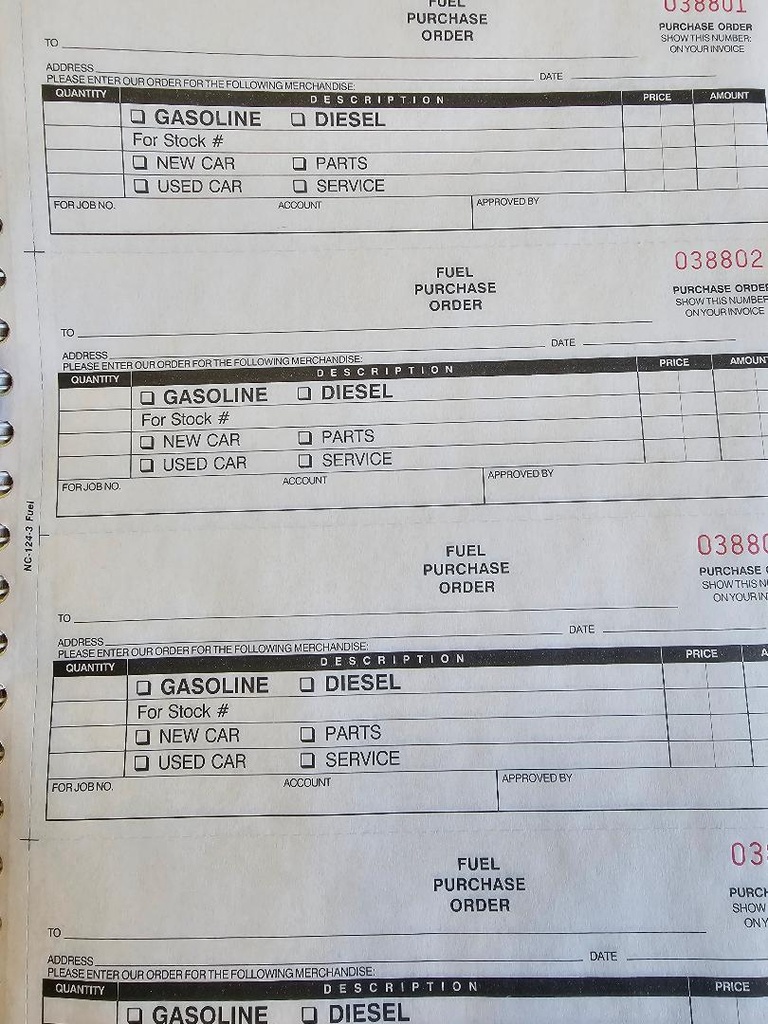 FUEL
PURCHASE
ORDER
038801
PURCHASE ORDER
SHOW THIS NUMBER:
ON YOUR INVOICE
TO
ADDRESS
DATE
PLEASE ENTER OUR ORDER FOR THE FOLLOWING MERCHANDISE:
QUANTITY DESCRIPTION PRICE AMOUNT
❑ GASOLINE ❑ DIESEL
For Stock #
❑ NEW CAR ❑ PARTS
❑ USED CAR ❑ SERVICE
FOR JOB NO. ACCOUNT APPROVED BY
FUEL
PURCHASE
ORDER
038802
PURCHASE ORDER
SHOW THIS NUMBER
ON YOUR INVOICE
TO
ADDRESS
DATE
PLEASE ENTER OUR ORDER FOR THE FOLLOWING MERCHANDISE:
QUANTITY DESCRIPTION PRICE AMOUN
❑ GASOLINE ❑ DIESEL
For Stock #
❑ NEW CAR ❑ PARTS
❑ USED CAR ❑ SERVICE
FOR JOB NO. ACCOUNT APPROVED BY
NC-124-3 Fuel
FUEL
PURCHASE
ORDER
0388
PURCHASE
SHOW THIS N
ON YOUR IN
TO
ADDRESS
DATE
PLEASE ENTER OUR ORDER FOR THE FOLLOWING MERCHANDISE:
QUANTITY DESCRIPTION PRICE A
❑ GASOLINE ❑ DIESEL
For Stock #
❑ NEW CAR ❑ PARTS
❑ USED CAR ❑ SERVICE
FOR JOB NO. ACCOUNT APPROVED BY
FUEL
PURCHASE
ORDER
03
PURCH
SHOW
ON Y
TO
ADDRESS
DATE
PLEASE ENTER OUR ORDER FOR THE FOLLOWING MERCHANDISE:
QUANTITY DESCRIPTION PRICE
❑ GASOLINE ❑ DIESEL